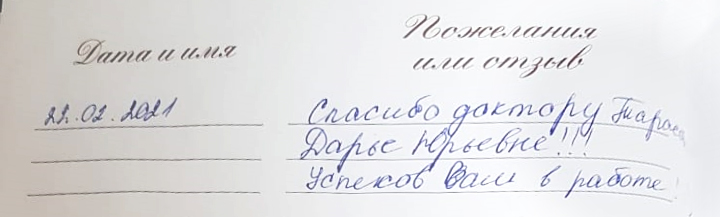 Дата и имя
Пожелания
или отзыв
22.02.2021
Спасибо доктору
Дарье Юрьевне!!!
Успехов Вам в работе!